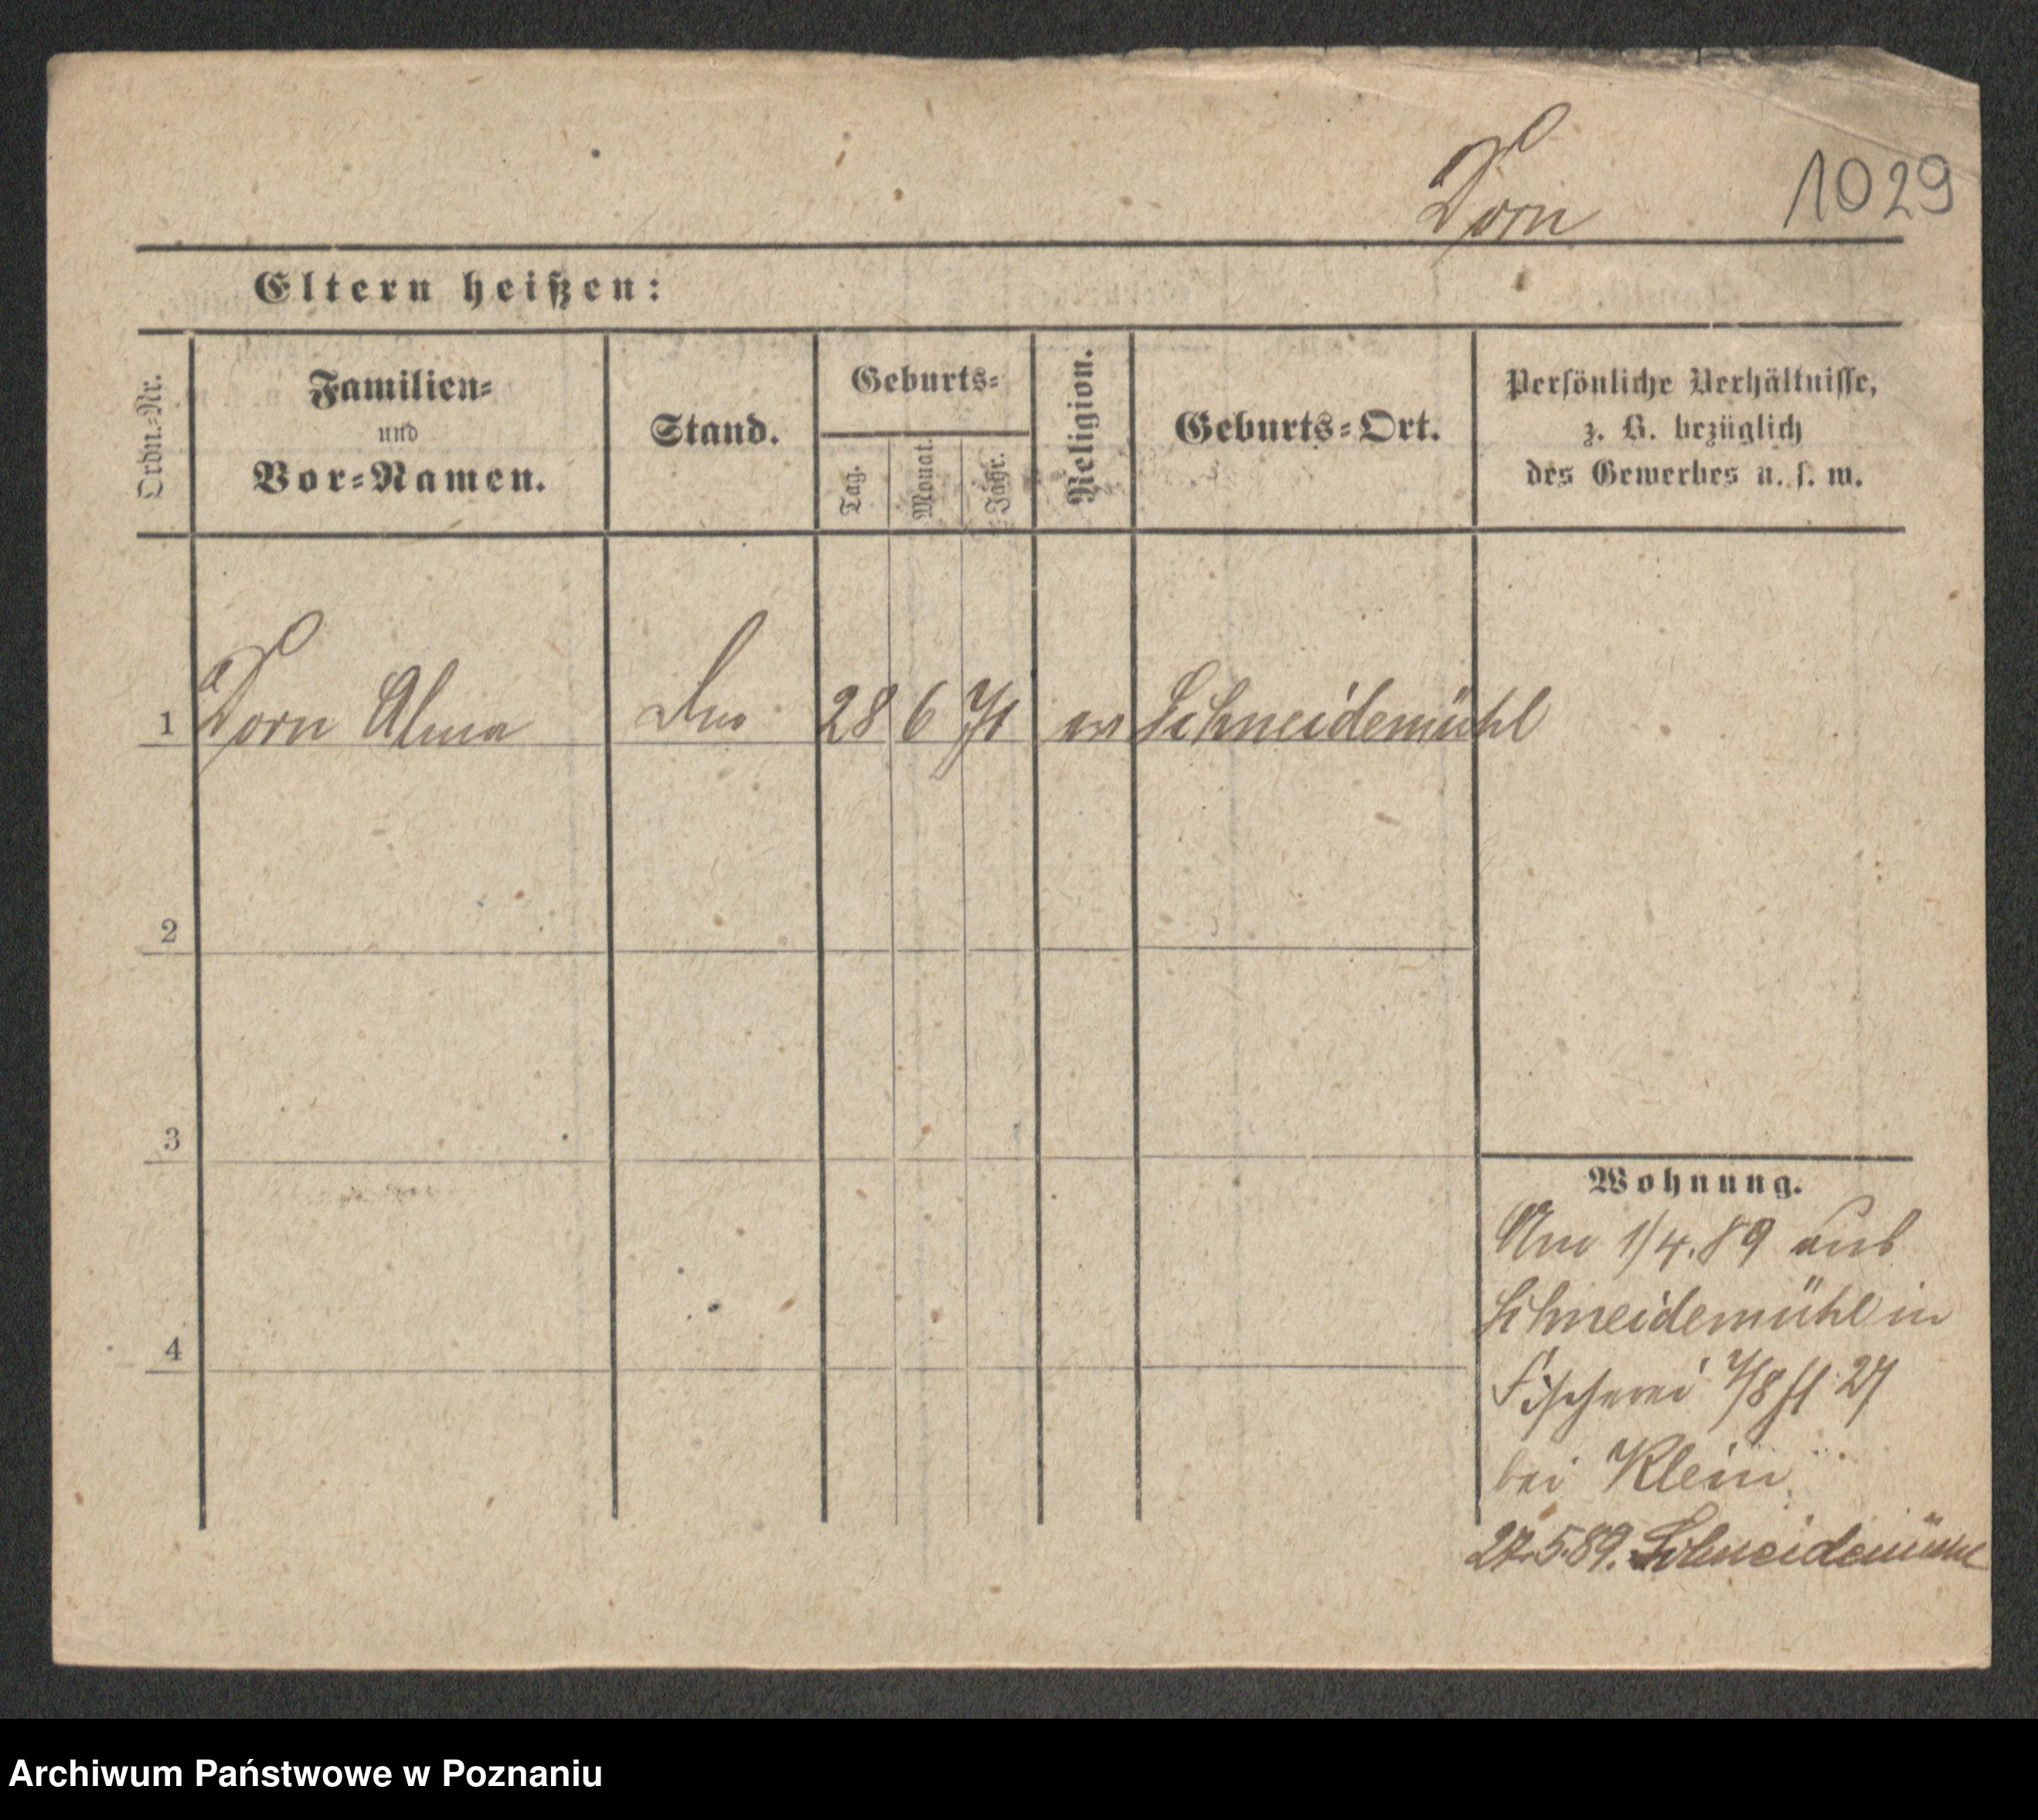 Dorn 1029
Eltern heißen:
Ordn.-Nr.
Familien-
und
Vor-Namen.
Stand.
Geburts-
Tag.
Monat.
Jahr.
Religion.
Geburts-Ort.
Persönliche Verhältnisse,
z. B. bezüglich
des Gewerbes u. s. w.
1 Dorn Alma 28 6 71 ev Schneidemühl
2
3
4
Wohnung.
Am 1/4.89 aus
Schneidemühl in
Fischerei 7/8 27
bei Klein
27.5.89. Schneidemühl
Archiwum Państwowe w Poznaniu